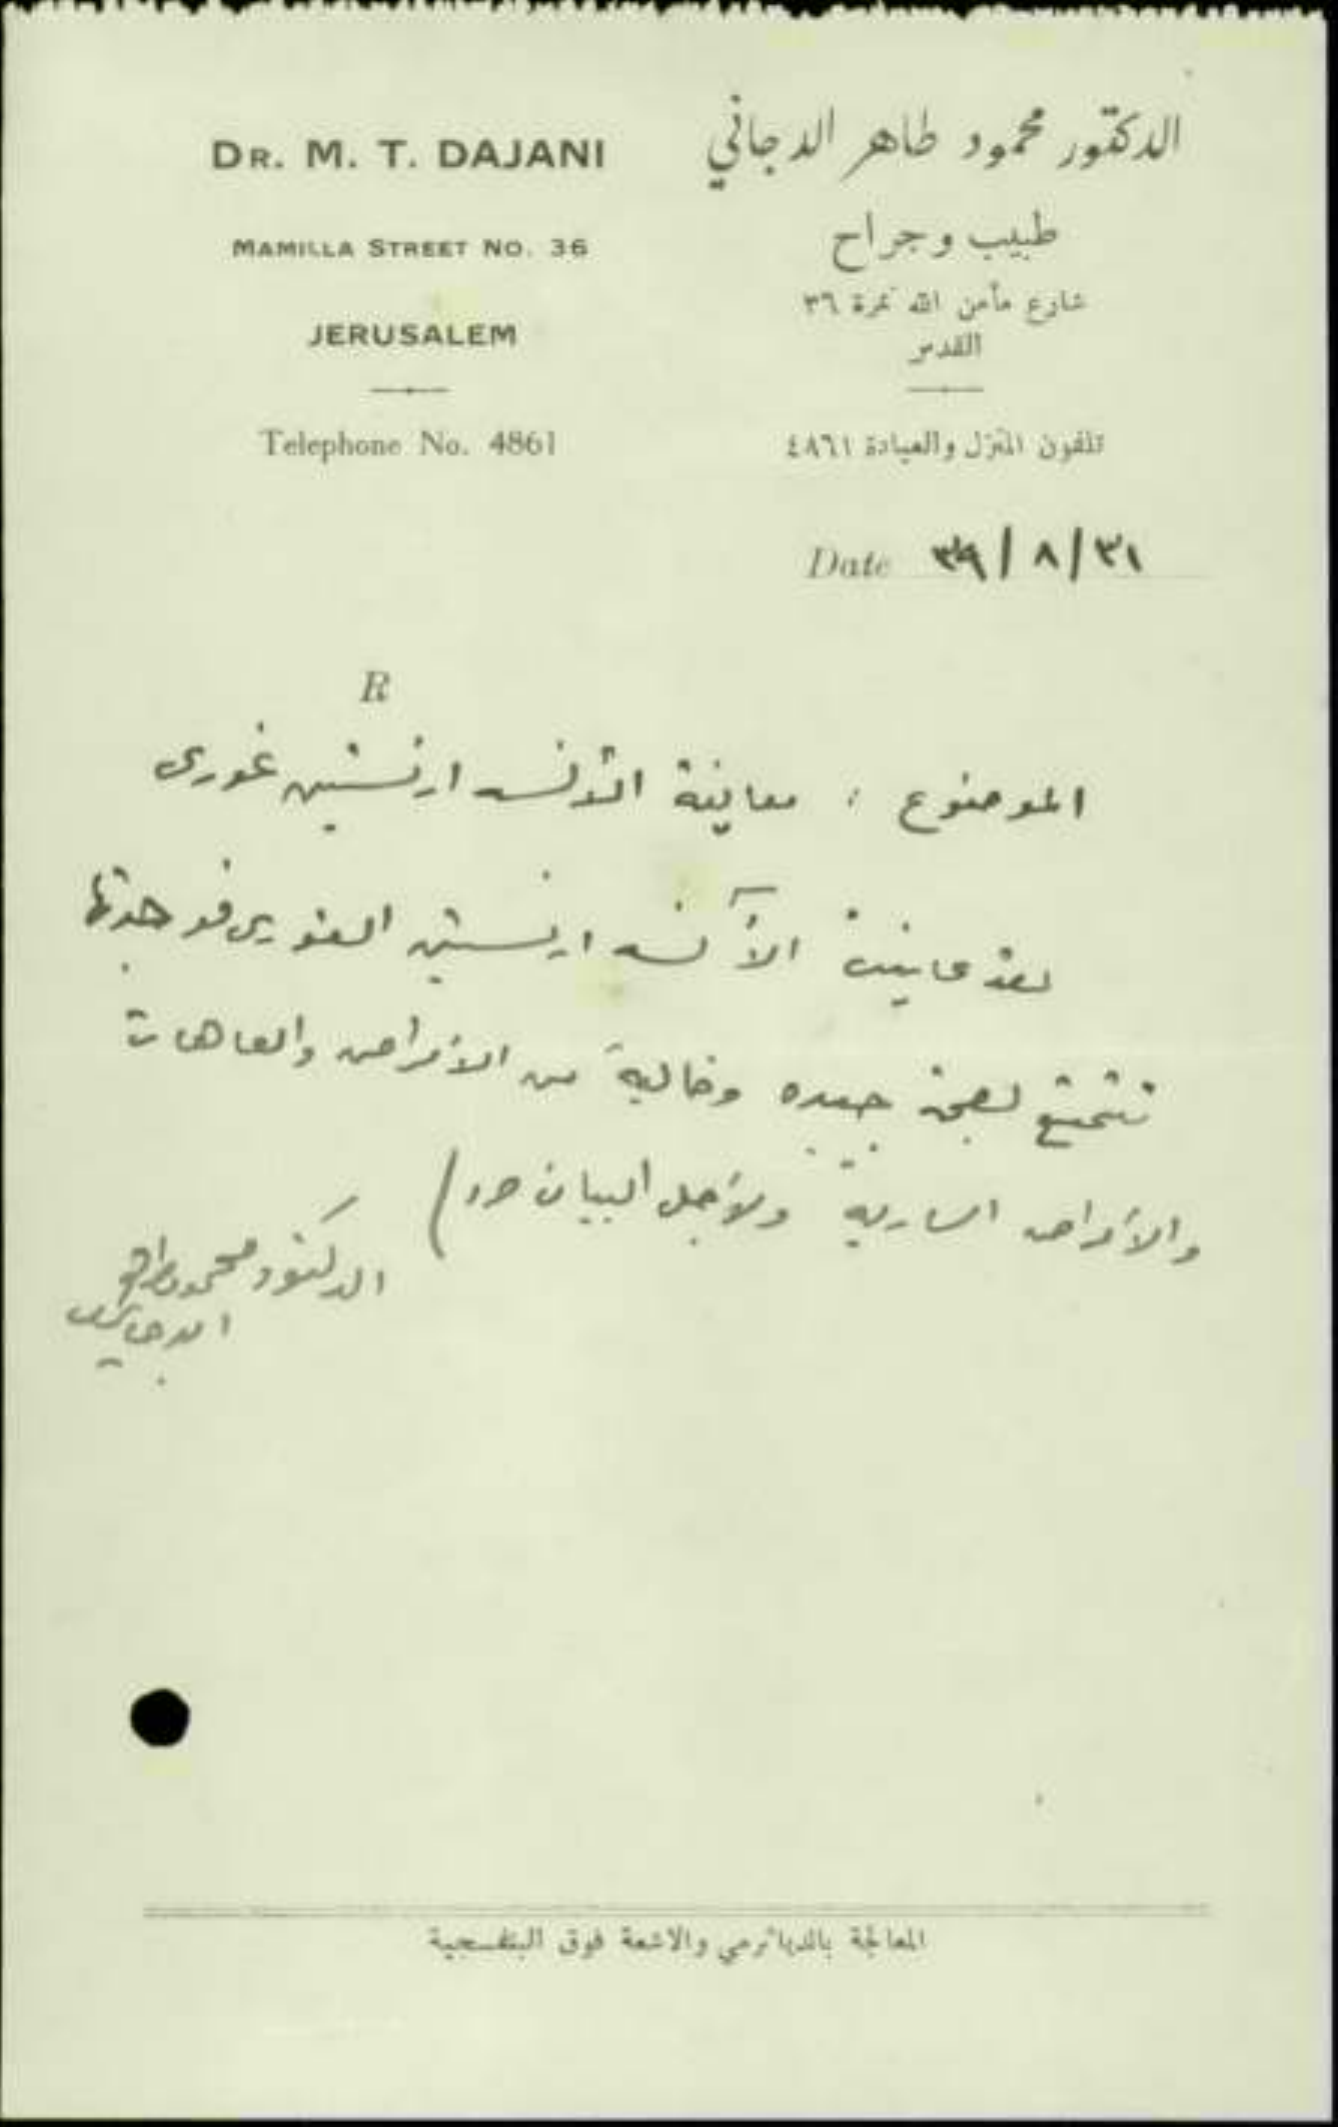 DR. M. T. DAJANI
MAMILLA STREET NO. 36
JERUSALEM
Telephone No. 4861
الدكتور محمود طاهر الدجاني
طبيب وجراح
شارع مأمن الله نمرة ٣٦
القدس
تلفون المنزل والعيادة ٤٨٦١
Date ٣١/٨/٣٩
R
الموضوع : معاينة الآنسه ارنستين غورى
لقد عاينت الآنسه ارنستين الغورى فوجدتها
تتمتع بصحة جيده وخالية من الأمراض والعاهات
والأمراض السارية ولأجل البيان حرر
الدكتور محمود طاهر
الدجاني
المعالجة بالدياثرمي والاشعة فوق البنفسجية